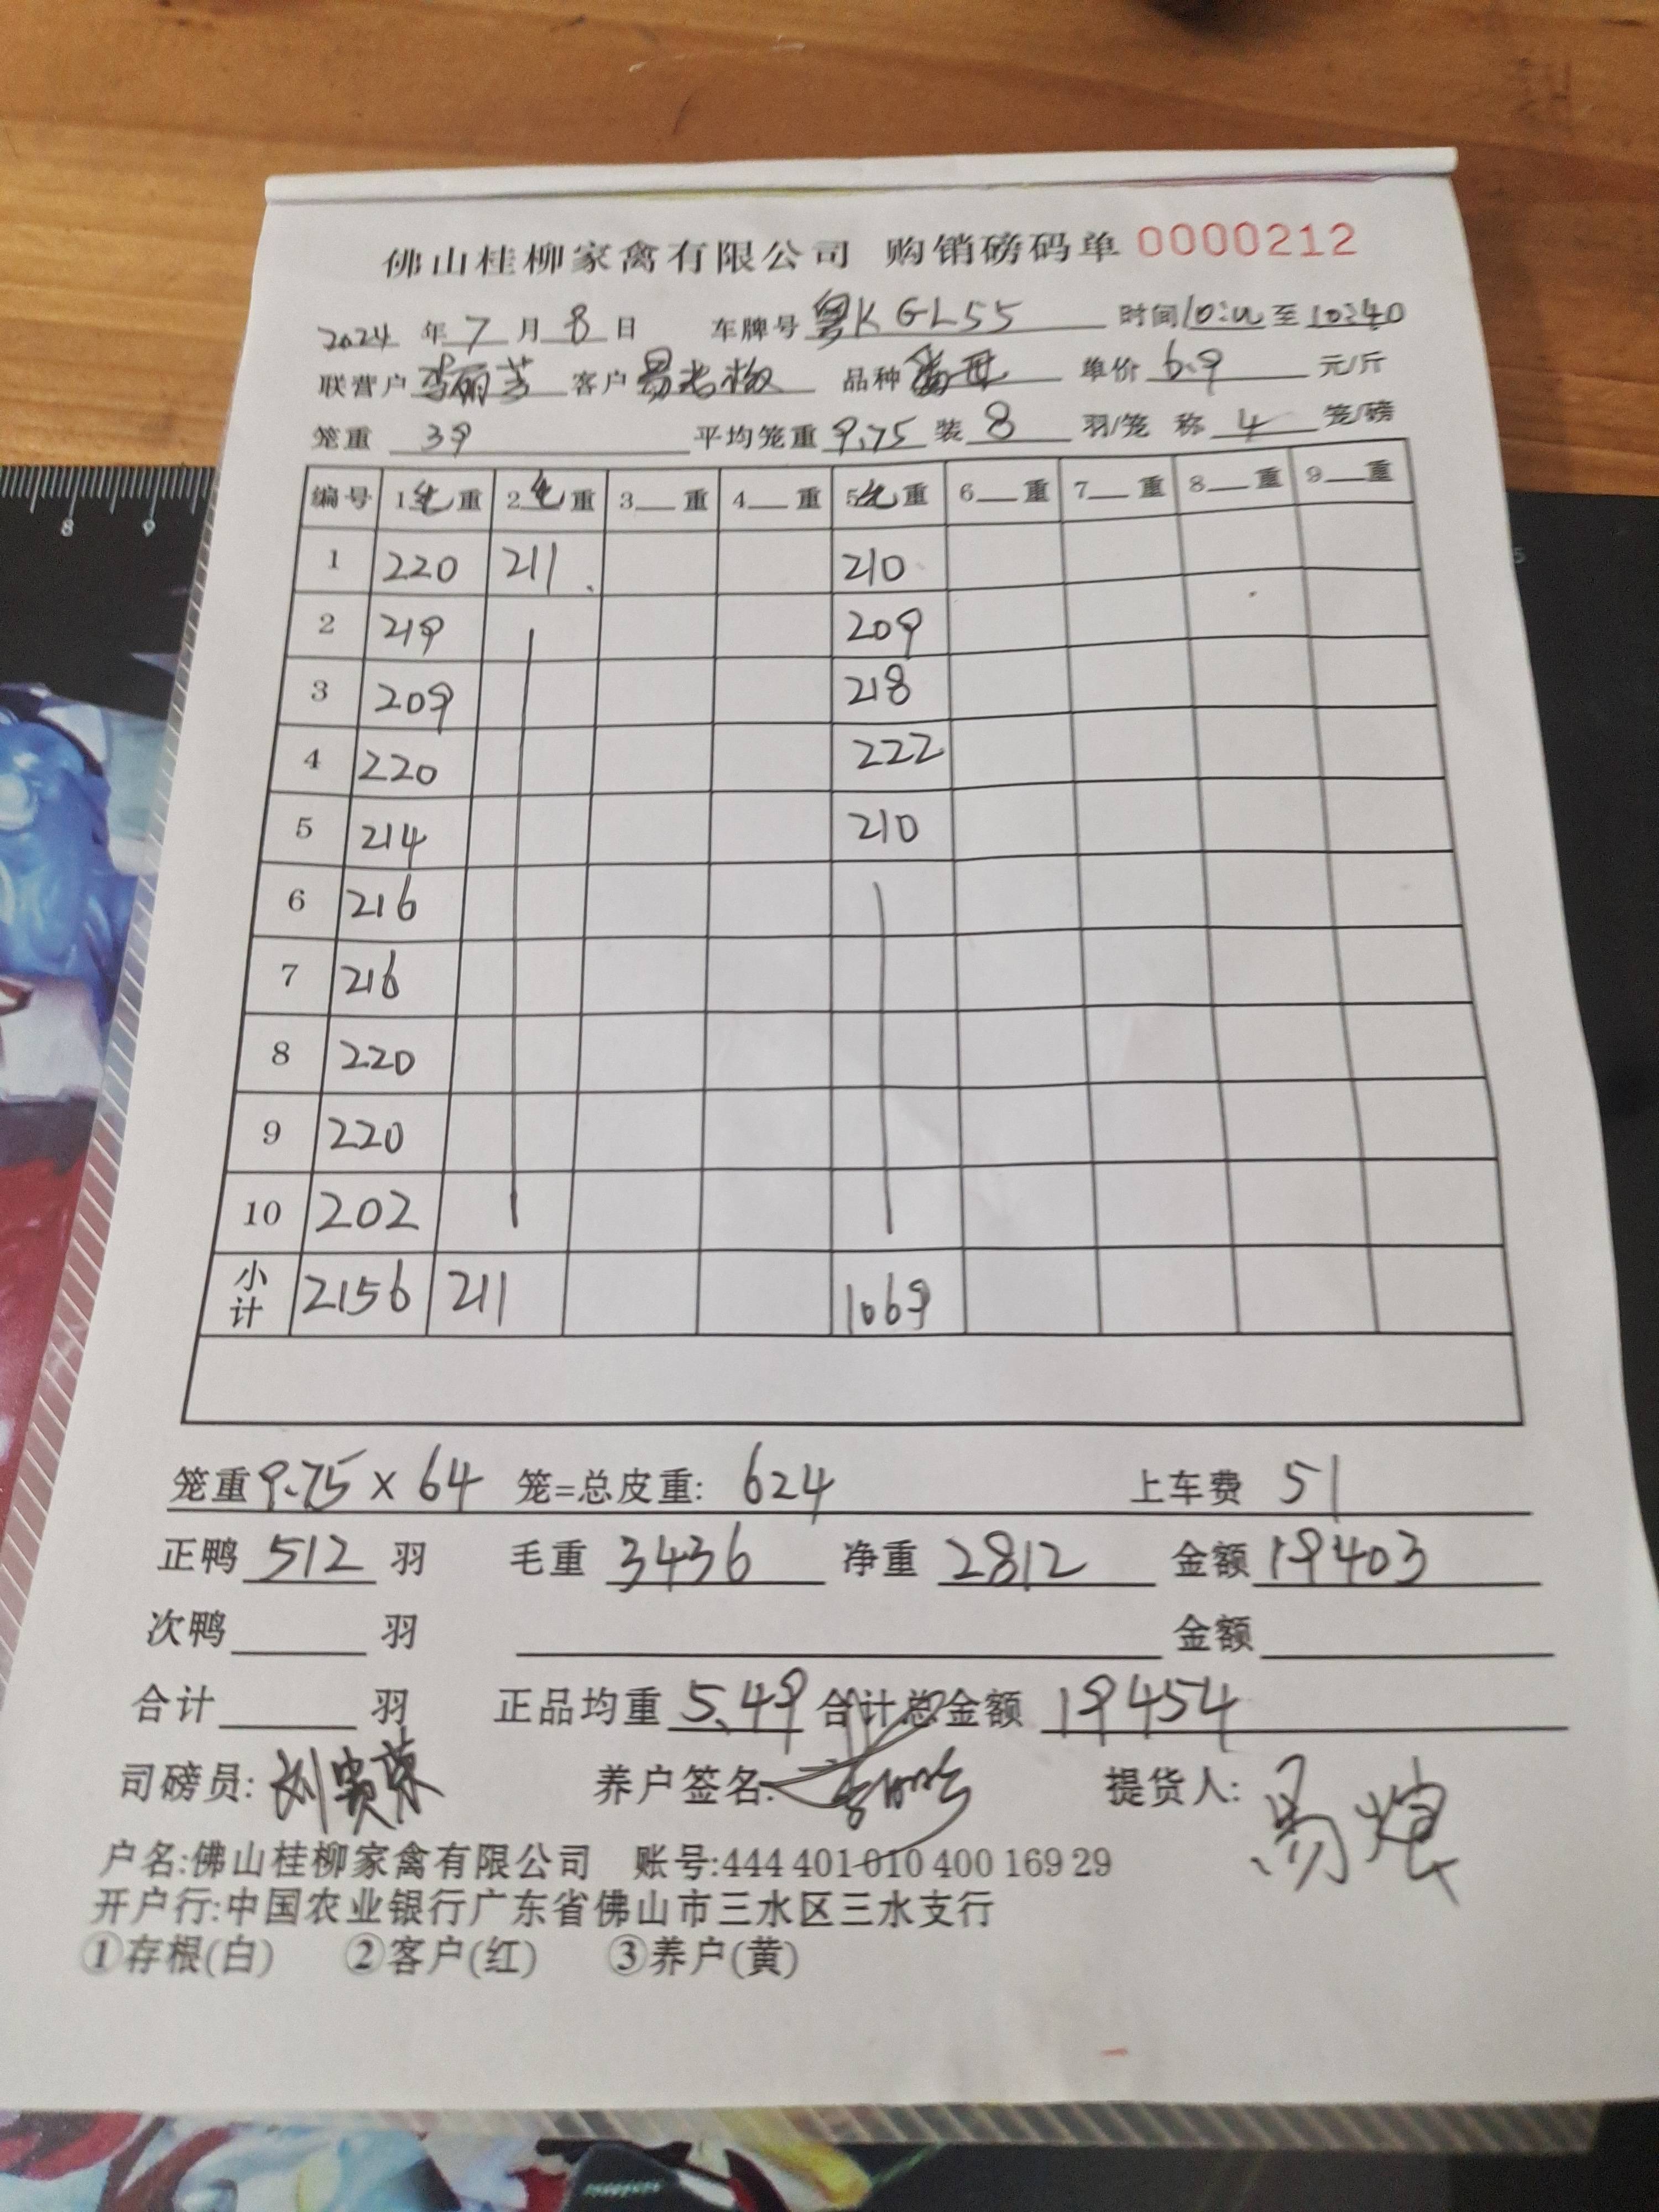 佛山桂柳家禽有限公司 购销磅码单 0000212
2024 年 7 月 8 日 车牌号 粤K GL55 时间 10:00 至 10:40
联营户 李丽芳 客户 易 品种 单价 6.9 元/斤
笼重 39 平均笼重 9.75 装 8 羽/笼 称 4 笼/磅
编号 1毛重 2毛重 3__重 4__重 5毛重 6__重 7__重 8__重 9__重
1 220 211 210
2 219 209
3 209 218
4 220 222
5 214 210
6 216
7 216
8 220
9 220
10 202
小计 2156 211 1069
笼重 9.75 × 64 笼=总皮重: 624 上车费 51
正鸭 512 羽 毛重 3436 净重 2812 金额 19403
次鸭 羽 金额
合计 羽 正品均重 5.49 合计总金额 19454
司磅员: 刘贵荣 养户签名: 提货人: 易煌
户名:佛山桂柳家禽有限公司 账号:444 401 010 400 169 29
开户行:中国农业银行广东省佛山市三水区三水支行
①存根(白) ②客户(红) ③养户(黄)